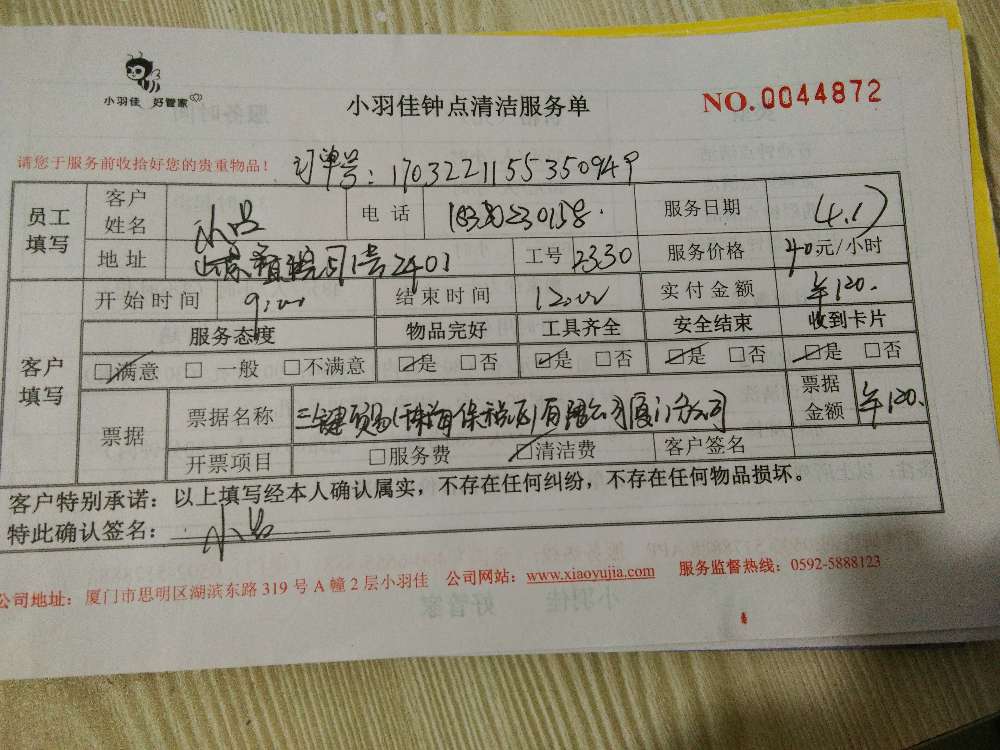 小羽佳 好管家
小羽佳钟点清洁服务单
NO.0044872
请您于服务前收拾好您的贵重物品！
订单号：17032211553509449
员工填写
客户姓名 小吕 电话 服务日期 4.1
地址 2401 工号 2330 服务价格 40元/小时
客户填写
开始时间 9:00 结束时间 12:00 实付金额 ¥120.
服务态度 物品完好 工具齐全 安全结束 收到卡片
满意 一般 不满意 是 否 是 否 是 否 是 否
票据 票据名称 三键贸易(珠海保税区)有限公司厦门分公司 票据金额 ¥120.
开票项目 服务费 清洁费 客户签名
客户特别承诺：以上填写经本人确认属实，不存在任何纠纷，不存在任何物品损坏。
特此确认签名： 小吕
公司地址：厦门市思明区湖滨东路319号A幢2层小羽佳 公司网站：www.xiaoyujia.com 服务监督热线：0592-5888123